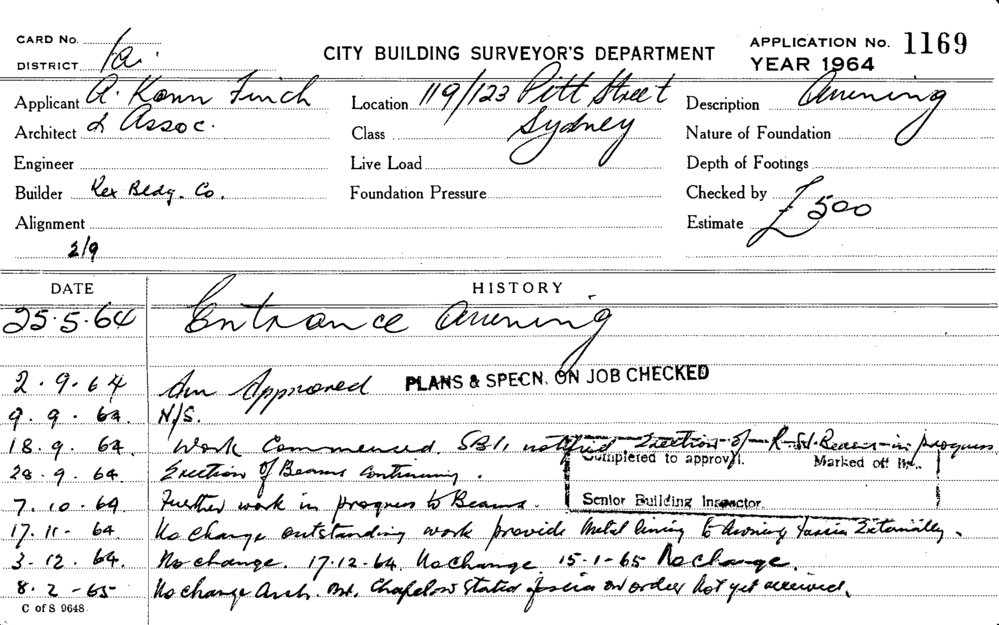 CARD No. 1a. CITY BUILDING SURVEYOR'S DEPARTMENT APPLICATION No. 1169
DISTRICT YEAR 1964
Applicant A. Kann Finch Location 119/123 Pitt Street Description Awning
Architect & Assoc. Class Sydney Nature of Foundation
Engineer Live Load Depth of Footings
Builder Rex Bldg. Co. Foundation Pressure Checked by
Alignment Estimate £500
2/9
DATE HISTORY
25.5.64 Entrance Awning
2.9.64 Approved PLANS & SPECN. ON JOB CHECKED
9.9.64. N/S.
18.9.64. Work Commenced. SBI. notified Erection of R.S.J. Beams in progress
Completed to approval. Marked off
28.9.64 Erection of Beams Continuing.
Senior Building Inspector.
7.10.64 Further work in progress to Beams.
17.11.64 No change outstanding work provide Metal lining to Awning fascia Externally.
3.12.64. No change. 17.12.64. No change. 15-1-65 No change.
8.2-65 No change Arch. Mr. Chapelow stated fascia on order not yet received.
C of S 9648